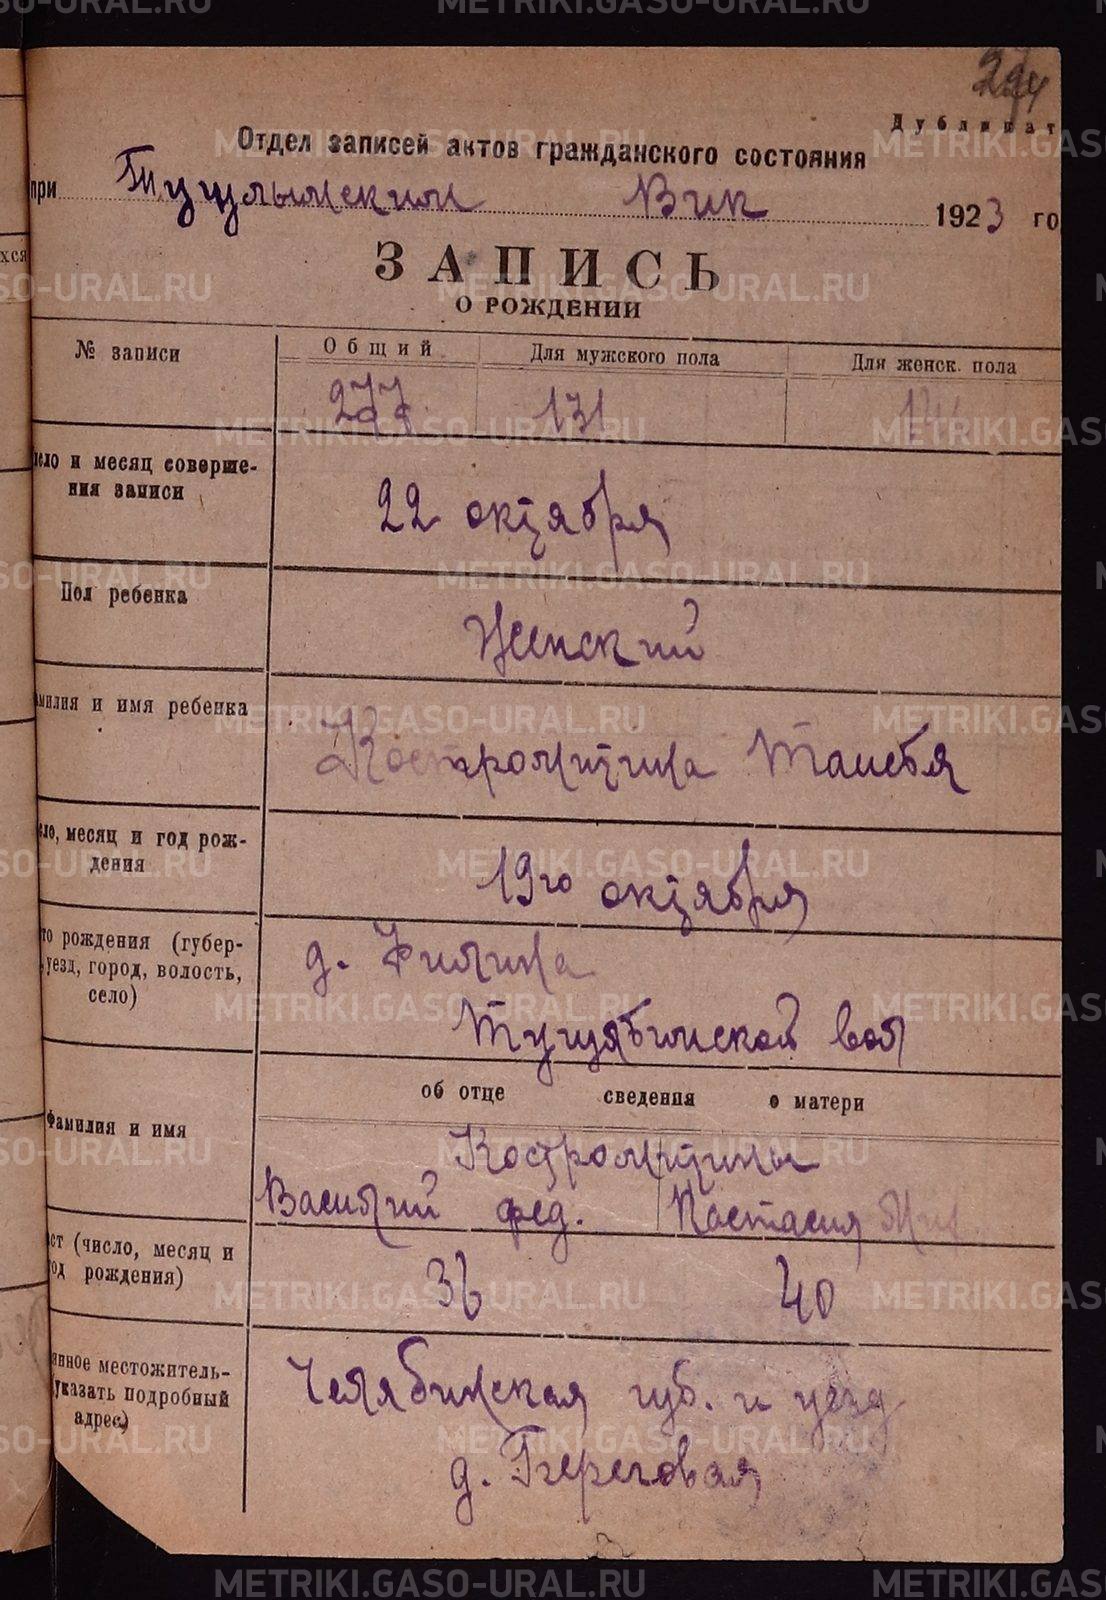 Дубликат
Отдел записей актов гражданского состояния
при Вик 1923 го
ЗАПИСЬ
О РОЖДЕНИИ
№ записи
Общий
Для мужского пола
Для женск. пола
277
131
исло и месяц соверше-
ния записи
22 октября
Пол ребенка
Женский
амилия и имя ребенка
Костромитина Таисья
сло, месяц и год рож-
дения
19го октября
то рождения (губер-
уезд, город, волость,
село)
д. Филина
вол
об отце сведения о матери
Фамилия и имя
Костромитины
Василий Фед.
Настасия
ст (число, месяц и
од рождения)
36
40
янное местожитель-
указать подробный
адрес)
Челябинская губ. и уезд
д. Береговая
METRIKI.GASO-URAL.RU